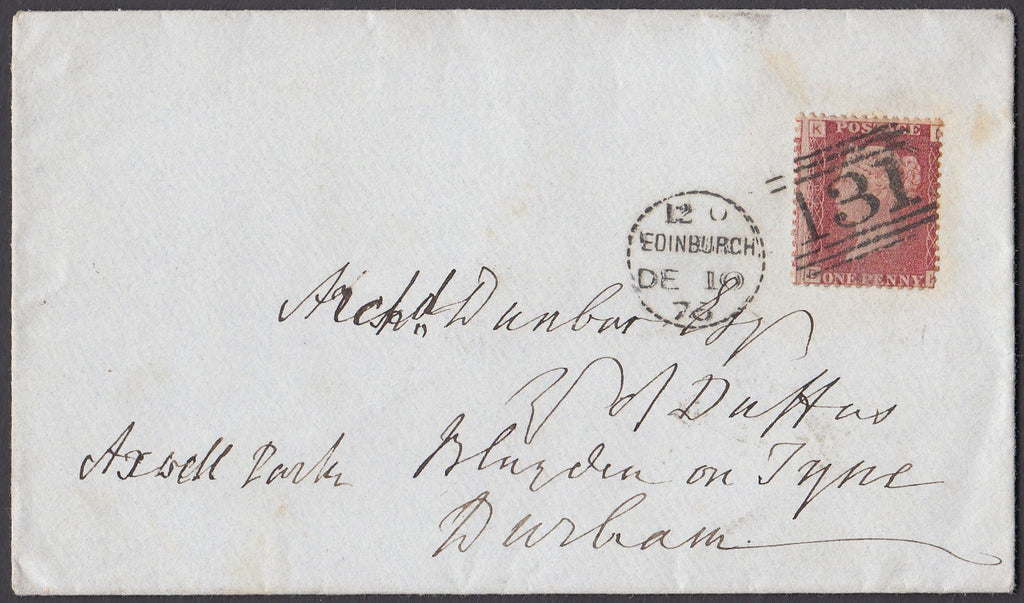 K POSTAGE
131
ONE PENNY
12 0
EDINBURGH
DE 10
76
Archd. Dunbar Esqr
Yr of Duffus
Axwell Park Blaydon on Tyne
Durham